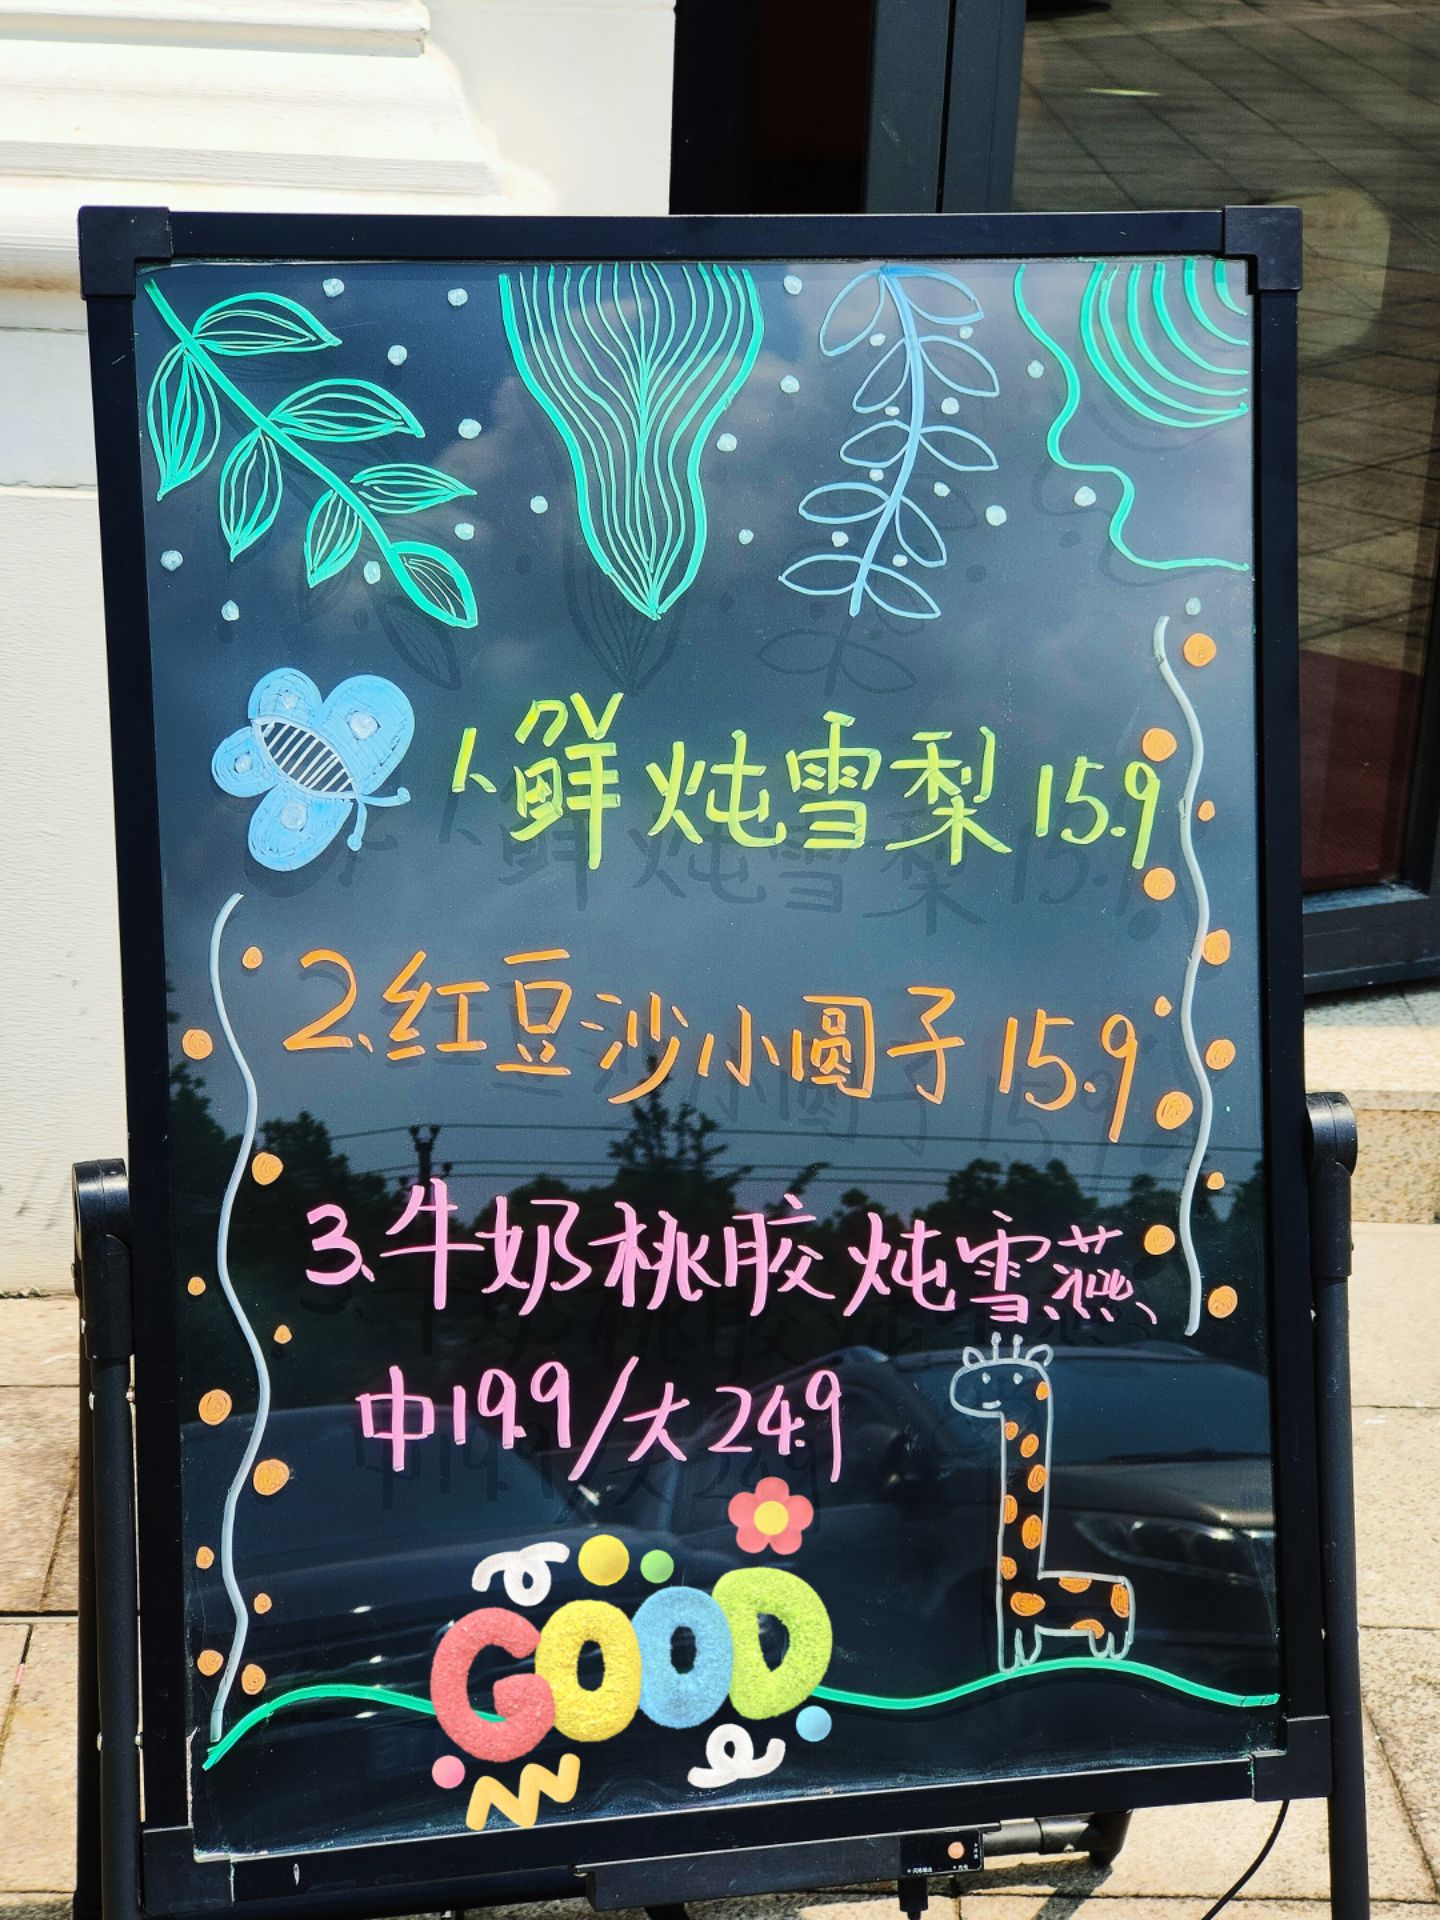 1、鲜炖雪梨 15.9
2、红豆沙小圆子 15.9
3、牛奶桃胶炖雪燕
中19.9/大24.9
GOOD